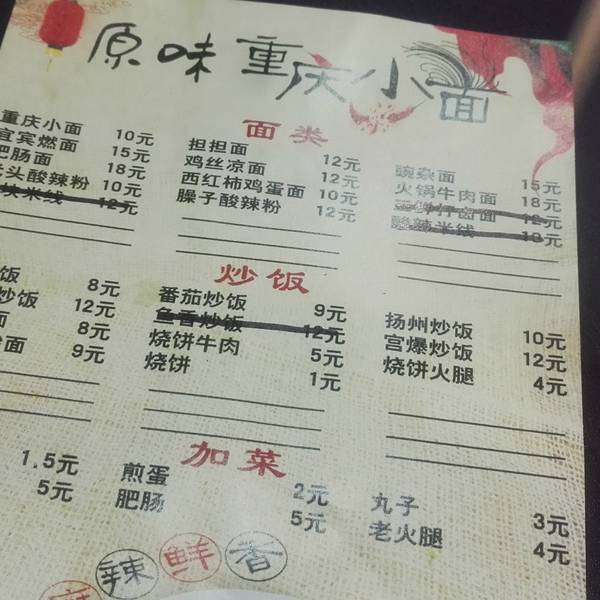 原味重庆小面
面类
重庆小面 10元
宜宾燃面 15元
肥肠面 18元
老头酸辣粉 10元
块米线 12元
担担面 12元
鸡丝凉面 12元
西红柿鸡蛋面 10元
臊子酸辣粉 12元
豌杂面 15元
火锅牛肉面 18元
卤面 12元
酸辣米线 10元
炒饭
饭 8元
炒饭 12元
面 8元
面 9元
番茄炒饭 9元
鱼香炒饭 12元
烧饼牛肉 5元
烧饼 1元
扬州炒饭 10元
宫爆炒饭 12元
烧饼火腿 4元
加菜
1.5元
5元
煎蛋 2元
肥肠 5元
丸子 3元
老火腿 4元
辣鲜香